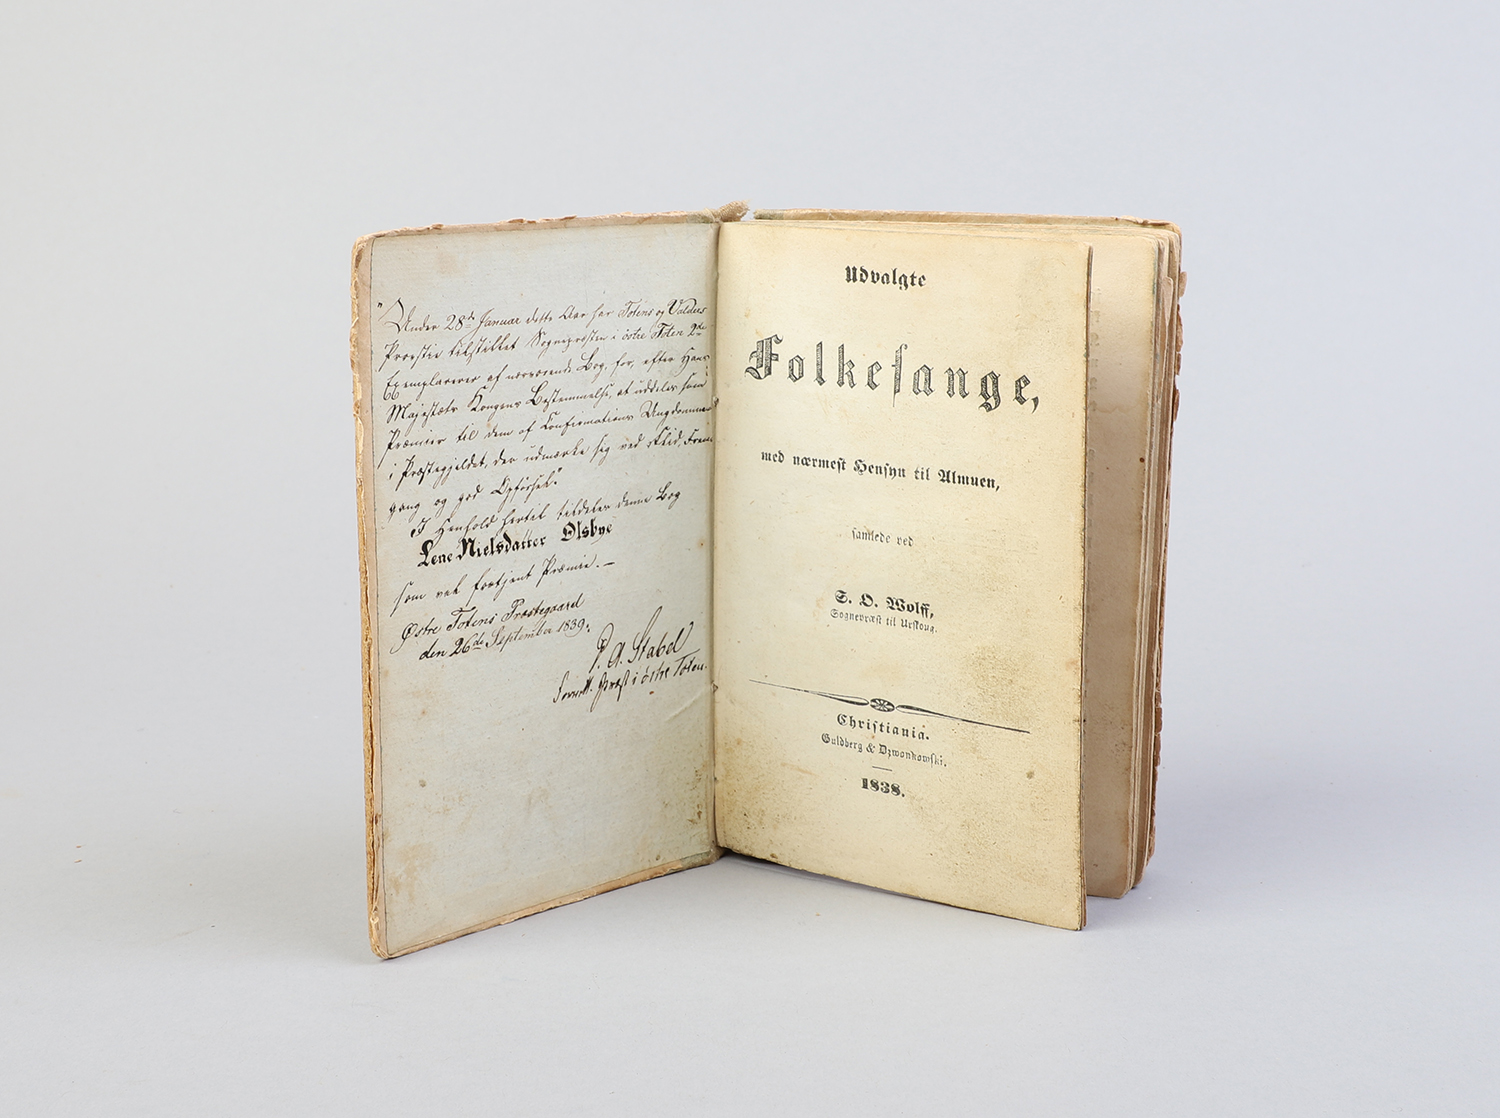 "Under 28de Januar dette Aar har Totens og Valders
Provstie tilstillet Sognepræsten i östre Toten 2de
Exemplarer af nærværende Bog, for, efter Hans
Majestæts Kongens Bestemmelse, at uddeles som
Præmier til dem af Confirmations Ungdommen
i Præstegjeldet, der udmærke sig ved Flid, Frem-
gang og god Opførsel."
I Henhold hertil tildeles denne Bog
Lene Nielsdatter Ølsbye
som vel fortjent Præmie. —
Østre Totens Præstegaard
den 26de September 1839.
P. A. Stabel
Præst i östre Toten.
Udvalgte
Folkesange,
med nærmest Hensyn til Almuen,
samlede ved
S. O. Wolff,
Sognepræst til Urskoug.
Christiania.
Guldberg & Dzwonkowski.
1838.